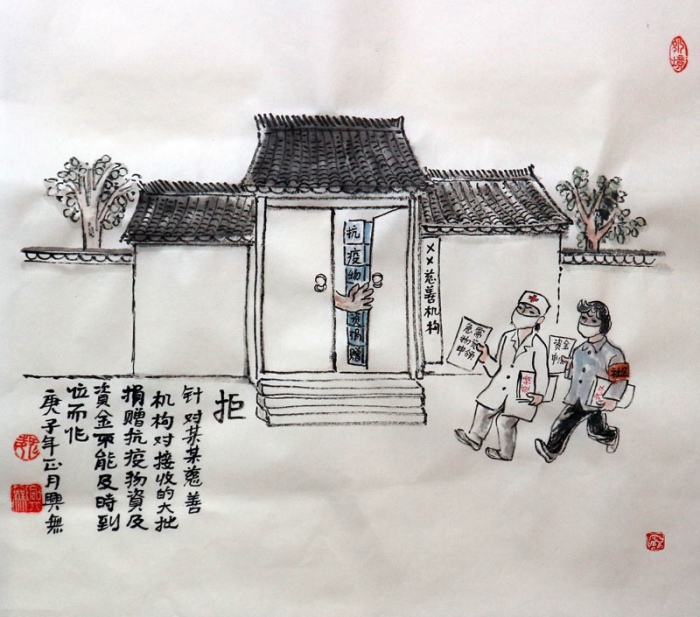 抗疫物资捐赠
××慈善机构
急需
物资
资金
拒
针对某某慈善
机构对接收的大批
捐赠抗疫物資及
資金不能及時到
位而作
庚子年正月興無